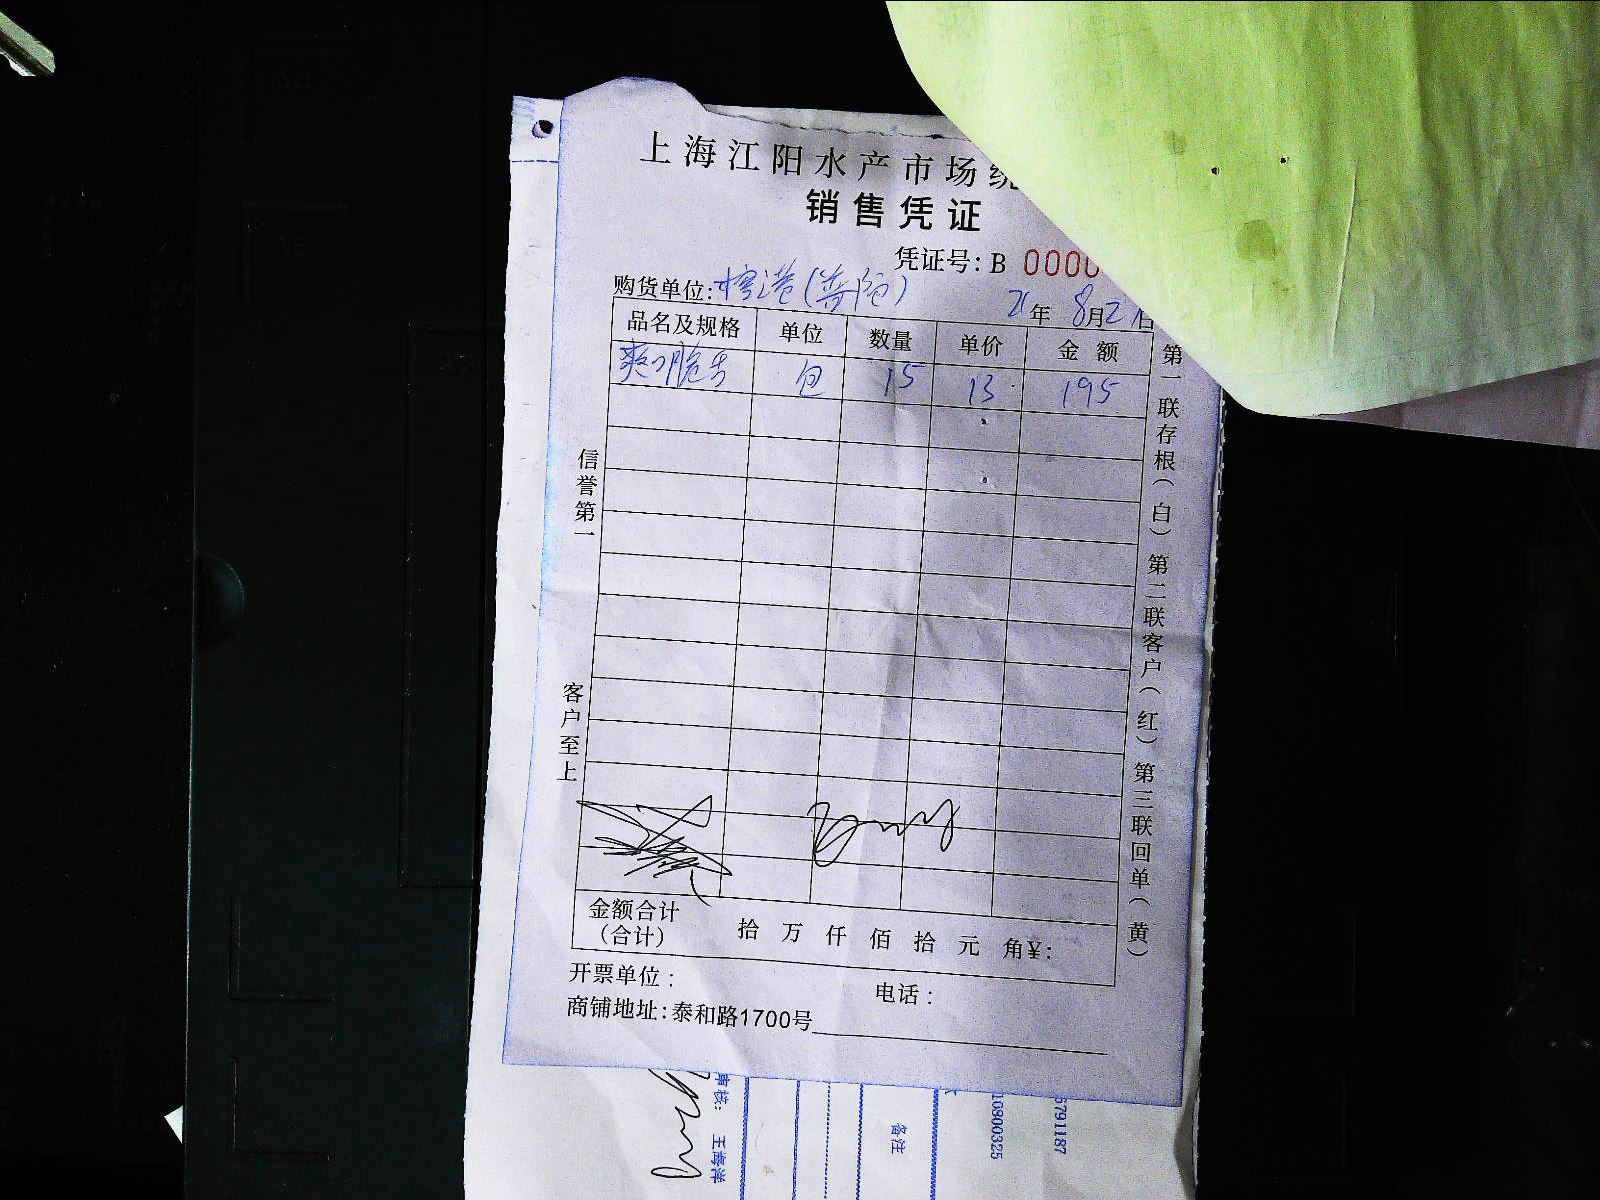 上海江阳水产市场统
销售凭证
凭证号: B 0000
购货单位: 港(普陀)
21年 8月2日
品名及规格 单位 数量 单价 金额
爽口脆 包 15 13 195
信誉第一
客户至上
第一联存根(白) 第二联客户(红) 第三联回单(黄)
金额合计 拾 万 仟 佰 拾 元 角¥:
(合计)
开票单位: 电话:
商铺地址:泰和路1700号
审核: 王海洋
备注
10800325
5791187